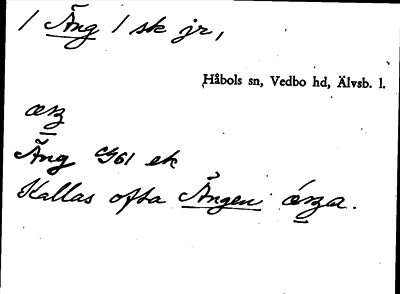 1 Äng 1 sk jr,
Håbols sn, Vedbo hd, Älvsb. l.
Äng 61 ek
Kallas ofta Ängen